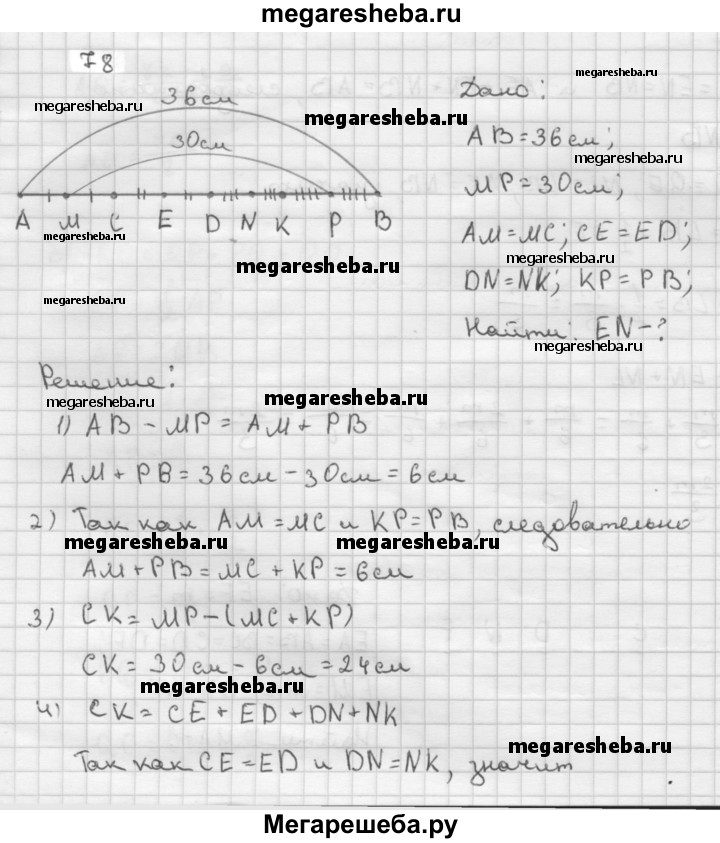 megaresheba.ru
78
36см
30см
A M C E D N K P B
Дано:
AB=36см;
MP=30см;
AM=MC; CE=ED;
DN=NK; KP=PB;
Найти: EN-?
megaresheba.ru
megaresheba.ru
megaresheba.ru
megaresheba.ru
megaresheba.ru
megaresheba.ru
megaresheba.ru
megaresheba.ru
Решение:
megaresheba.ru
megaresheba.ru
1) AB - MP = AM + PB
AM + PB = 36см - 30см = 6см
2) Так как AM = MC и KP = PB, следовательно
megaresheba.ru
megaresheba.ru
AM + PB = MC + KP = 6см
3) CK = MP - (MC + KP)
CK = 30см - 6см = 24см
megaresheba.ru
4) CK = CE + ED + DN + NK
megaresheba.ru
Так как CE = ED и DN = NK, значит
Мегарешеба.ру